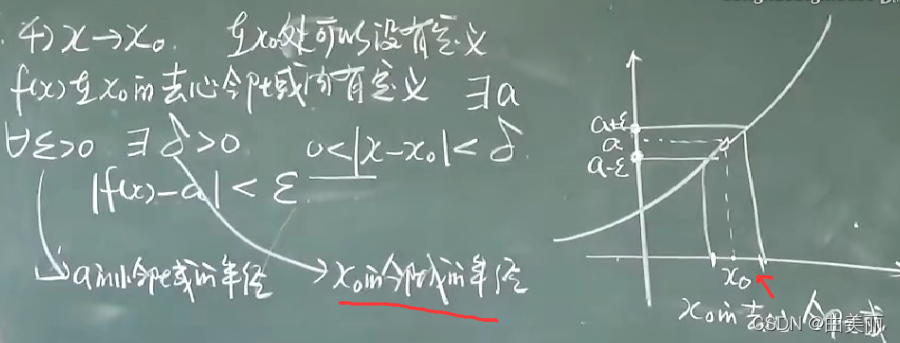 4) x→x₀. 在x₀处可以没有定义
f(x)在x₀的去心邻域内有定义 ∃a
∀ε>0 ∃δ>0 0<|x-x₀|<δ
|f(x)-a|<ε
a的邻域的半径
x₀的邻域的半径
a+ε
a
a-ε
x₀
x₀的去心邻域
CSDN @田美丽